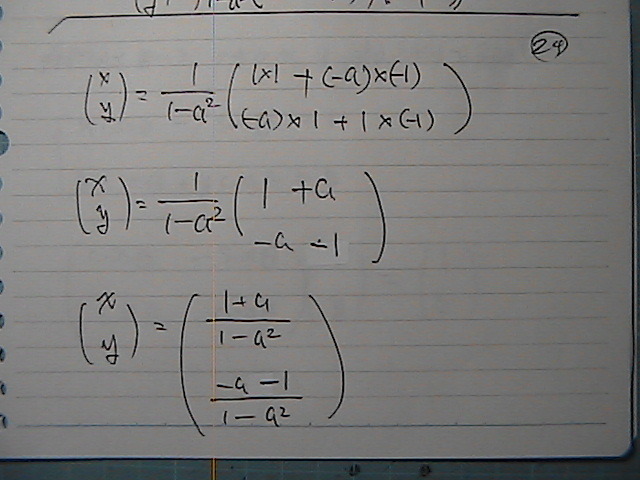 ㉔
(x y) = 1/(1-a²) (1×1 + (-a)×(-1) (-a)×1 + 1×(-1))
(x y) = 1/(1-a²) (1 + a -a - 1)
(x y) = ((1+a)/(1-a²) (-a-1)/(1-a²))